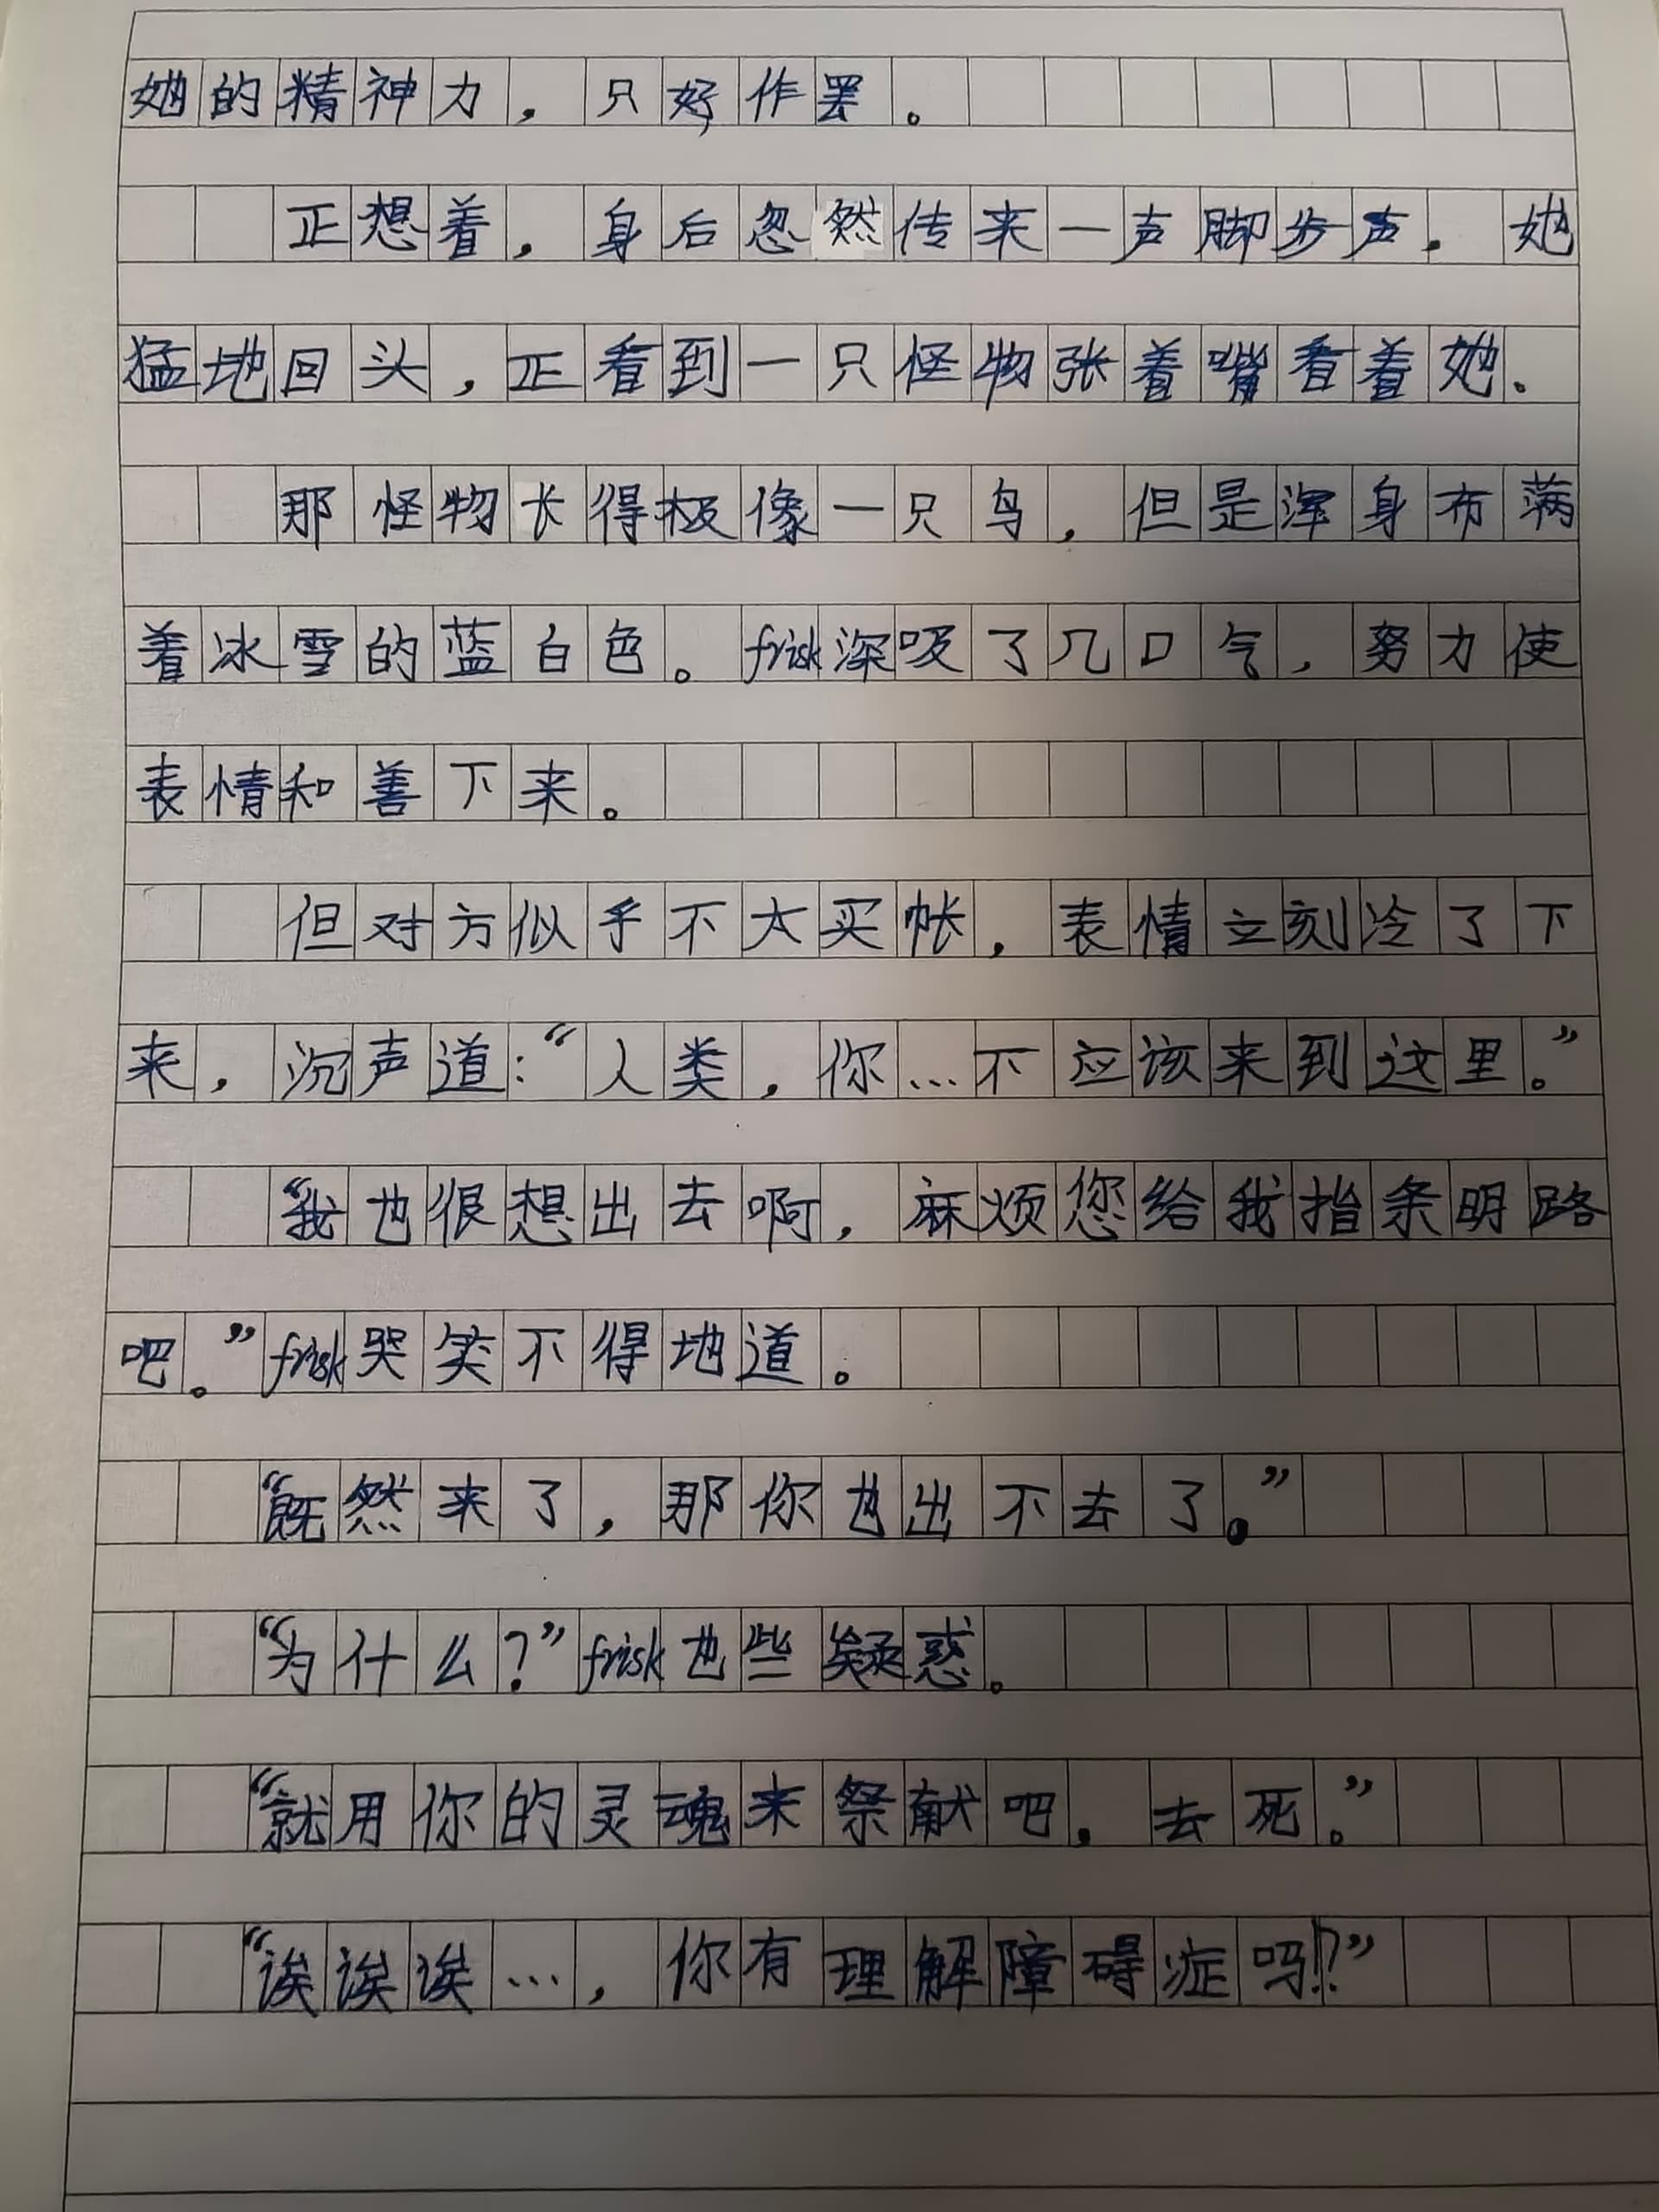 她的精神力，只好作罢。
正想着，身后忽然传来一声脚步声。她
猛地回头，正看到一只怪物张着嘴看着她。
那怪物长得极像一只鸟，但是浑身布满
着冰雪的蓝白色。frisk深吸了几口气，努力使
表情和善下来。
但对方似乎不大买帐，表情立刻冷了下
来，沉声道：“人类，你…不应该来到这里。”
“我也很想出去啊，麻烦您给我指条明路
吧。”frisk哭笑不得地道。
“既然来了，那你也出不去了。”
“为什么？”frisk也些疑惑。
“就用你的灵魂来祭献吧，去死。”
“诶诶诶…，你有理解障碍症吗!？”